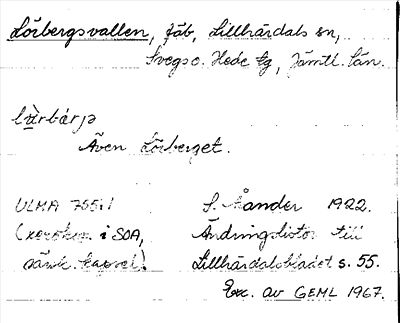 Lörbergsvallen, fäb, Lillhärdals sn,
Svegs o. Hede tg, Jämtl. län.
lὠrbárjə
Även Lörberget.
ULMA 755:1 S. Åander 1922.
(xerokop. i SOA, Ändringslistor till
särsk. kapsel). Lillhärdalsbladet s. 55.
Exc. av GEML 1967.